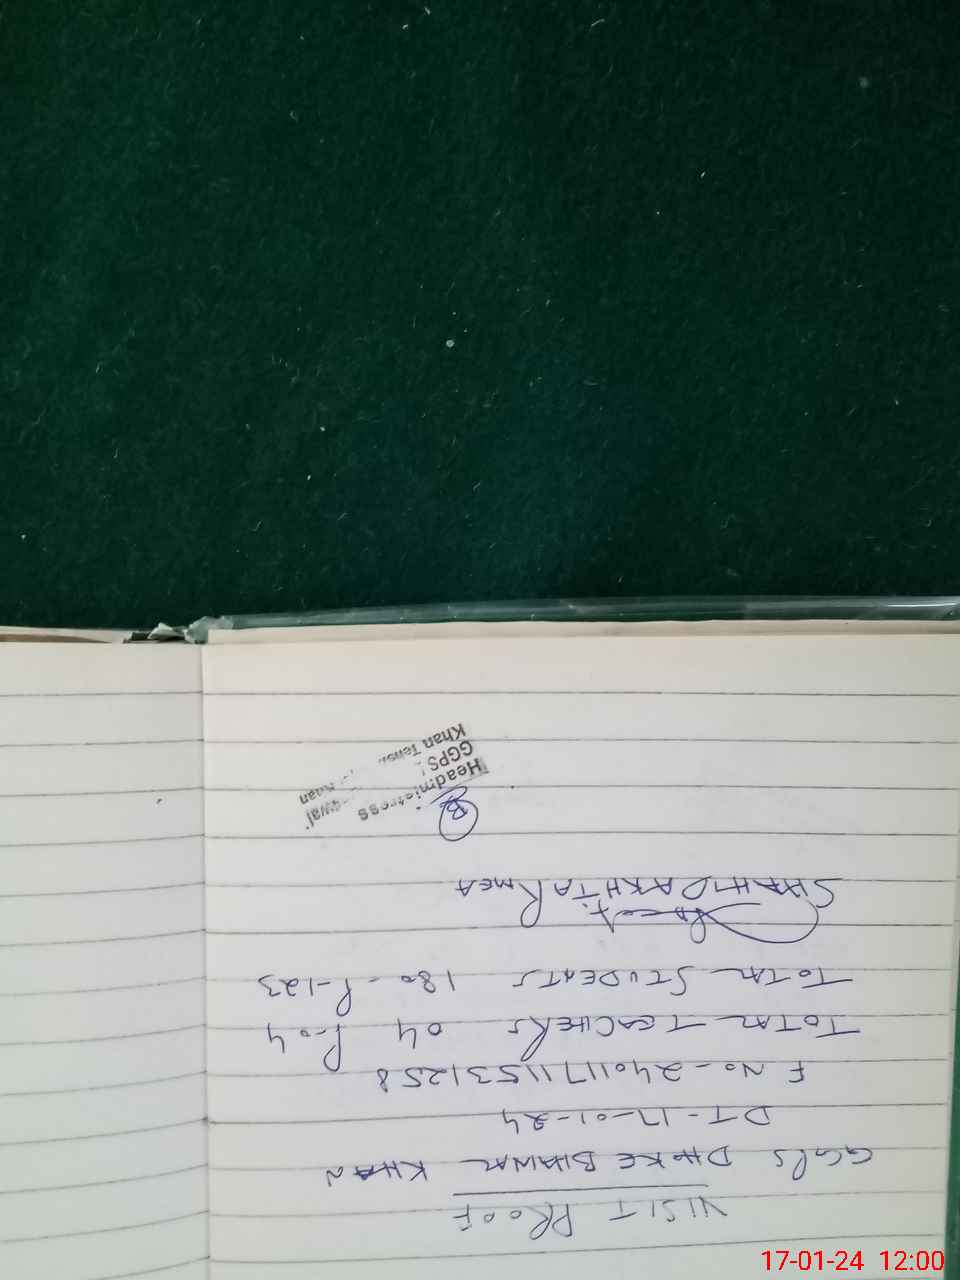 VISIT PROOF
GGPS DHOKE BHAWAL KHAN
DT - 17-01-24
F No - 24011711531258
TOTAL TEACHERS 04 P-04
TOTAL STUDENTS 180 - P-123
SHAHID AKHTAR MEA
Headmistress
GGPS
Khan Tehs.
Khan
17-01-24 12:00